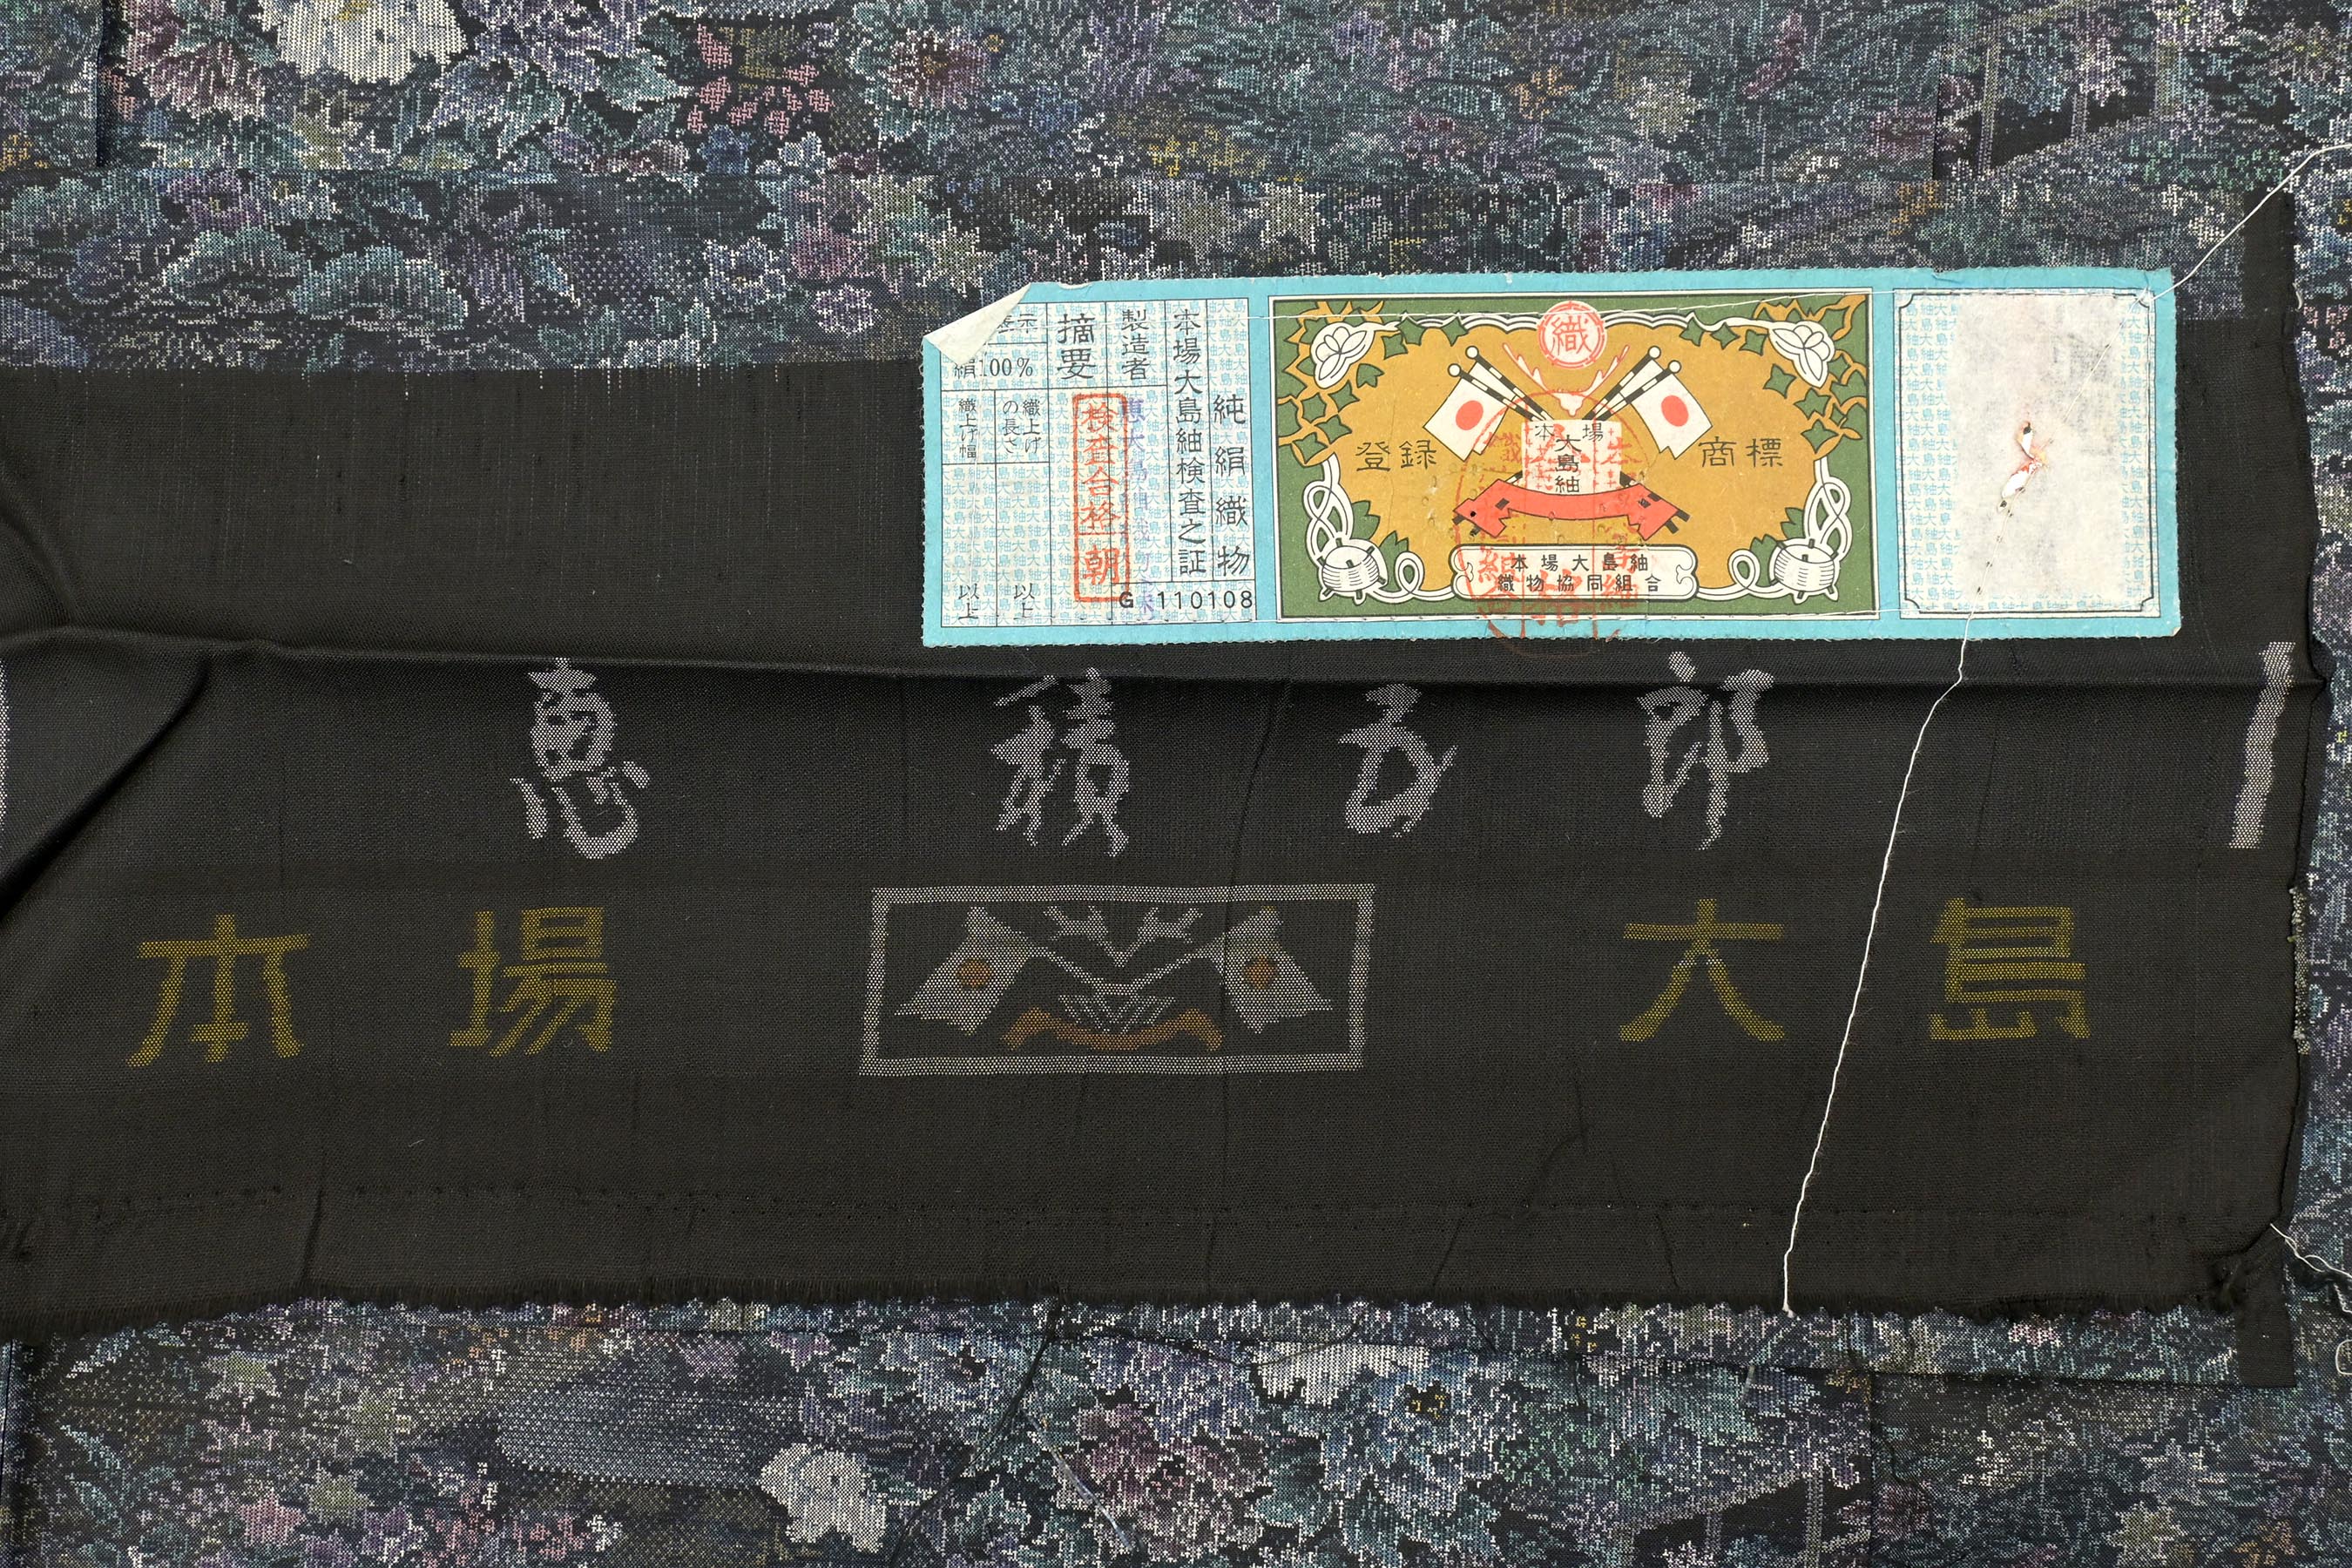 純絹織物
本場大島紬検査之証
製造者
摘要
検査合格
朝
絹100%
織上げの長さ
以上
織上げ幅
以上
G 110108
織
登録
商標
本場
大島紬
本場大島紬
織物協同組合
恵積五郎
本場
大島